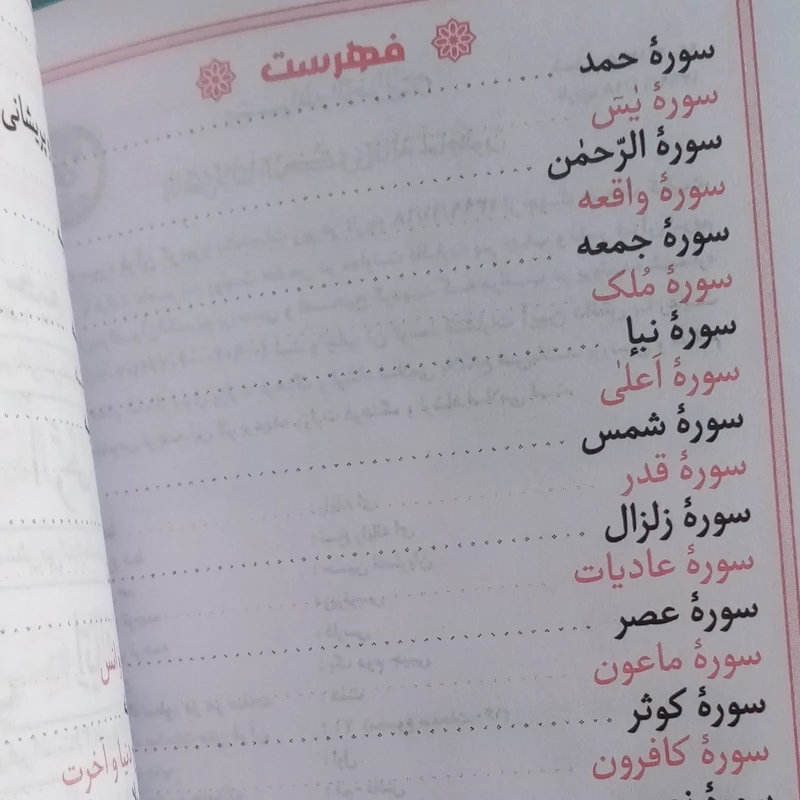 فهرست
سورهٔ حمد
سورهٔ یٰسٓ
سورهٔ الرّحمٰن
سورهٔ واقعه
سورهٔ جمعه
سورهٔ مُلک
سورهٔ نبإ
سورهٔ اَعلیٰ
سورهٔ شمس
سورهٔ قدر
سورهٔ زلزال
سورهٔ عادیات
سورهٔ عصر
سورهٔ ماعون
سورهٔ کوثر
سورهٔ کافرون
پریشانی
دنیا و آخرت